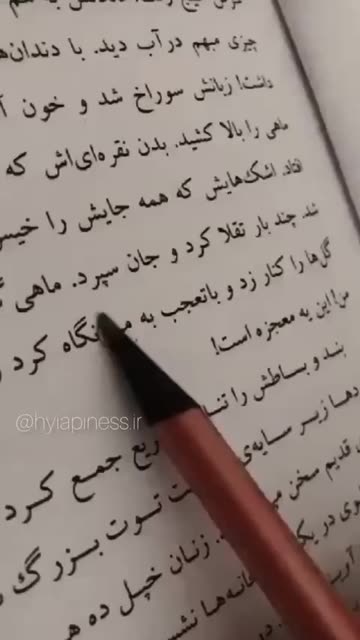 چیزی مبهم در آب دید. با دندان‌ها
داشت! زبانش سوراخ شد و خون
ماهی را بالا کشید. بدن نقره‌ای‌اش که
افتاد. اشک‌هایش که همه جایش را خیس
شد. چند بار تقلا کرد و جان سپرد. ماهی
گل‌ها را کنار زد و باتعجب به نگاه کرد
من! این یه معجزه است!
و بساطش را جمع کرد
زیر سایه‌ی توت بزرگ
قدیم سخن زنان خپل ده
در یک
@hyiapiness.ir